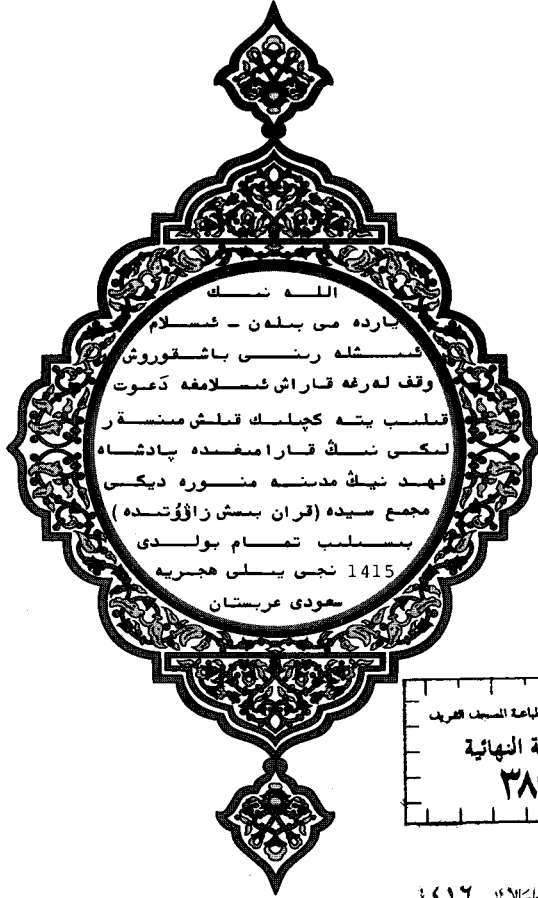 الله نىڭ
ياردە مى بىلەن - ئىسلام
ئىشلە رىنى باشقوروش
وقف لەرغە قاراش ئىسلامغە دَعوت
قىلىب يتە كچىلىك قىلش مىنىستر
لىكى نىڭ قارامىغىدە پادشاە
فهد نيڭ مدىنە منورە دىكى
مجمع سىدە (قران بىسش زاۋۇتىدە)
بىسىلىب تمام بولدى
1415 نجى يىلى هجريە
سعودى عربستان
طباعة المصحف الشريف
ة النهائية
٣٨